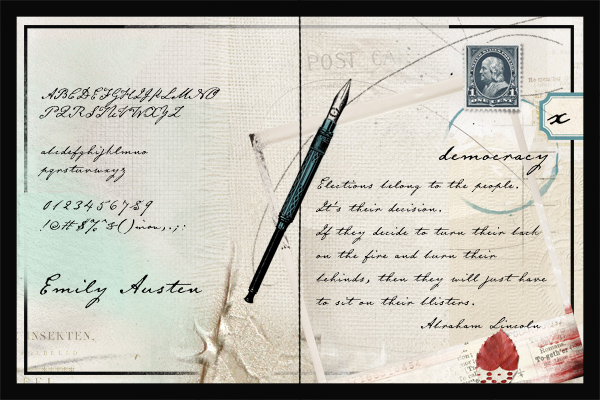 ABCDEFGHIJKLMNO
PQRSTUVWXYZ
abcdefghijklmno
pqrstuvwxyz
0123456789
Emily Austen
INSEKTEN,
POST CARD
1 ONE CENT 1
x
democracy
Elections belong to the people.
It's their decision.
If they decide to turn their back
on the fire and burn their
behinds, then they will just have
to sit on their blisters.
Abraham Lincoln
Romans
Together